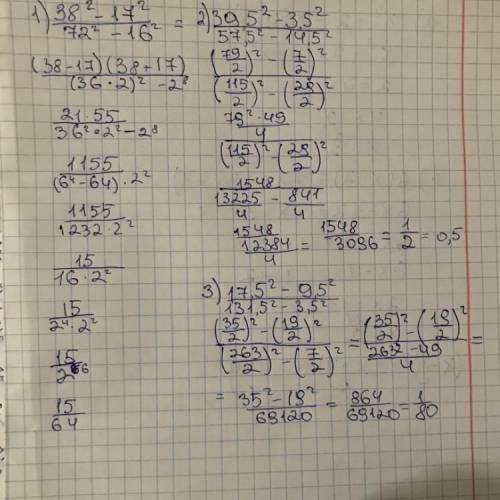 1) (38² - 17²)/(72² - 16²) =
((38-17)(38+17))/((36·2)² - 2⁸)
(21·55)/(36²·2² - 2⁸)
1155/((6⁴-64)·2²)
1155/(1232·2²)
15/(16·2²)
15/(2⁴·2²)
15/2⁶
15/64
2) (39,5² - 3,5²)/(57,5² - 14,5²)
((79/2)² - (7/2)²)/((115/2)² - (29/2)²)
((79²-49)/4)/((115/2)² - (29/2)²)
1548/(13225/4 - 841/4)
1548/(12384/4) = 1548/3096 = 1/2 = 0,5
3) (17,5² - 9,5²)/(131,5² - 3,5²)
((35/2)² - (19/2)²)/((263/2)² - (7/2)²) = ((35/2)² - (19/2)²)/((263²-49)/4) =
= (35²-19²)/69120 = 864/69120 = 1/80